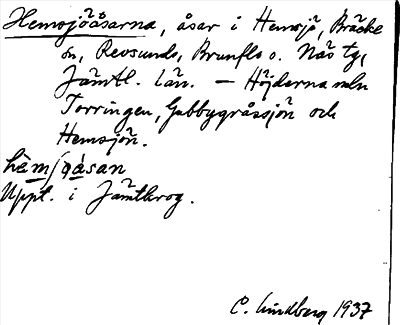 Hemsjöåsarna, åsar i Hemsjö, Bräcke
sn, Revsunds, Brunflo o. Näs tg,
Jämtl. län. — Höjderna mln
Torringen, Gubbygråssjön och
Hemsjön.
hèmʃǫåsan
Uppt. i Jämtkrog.
C. Lindberg 1937